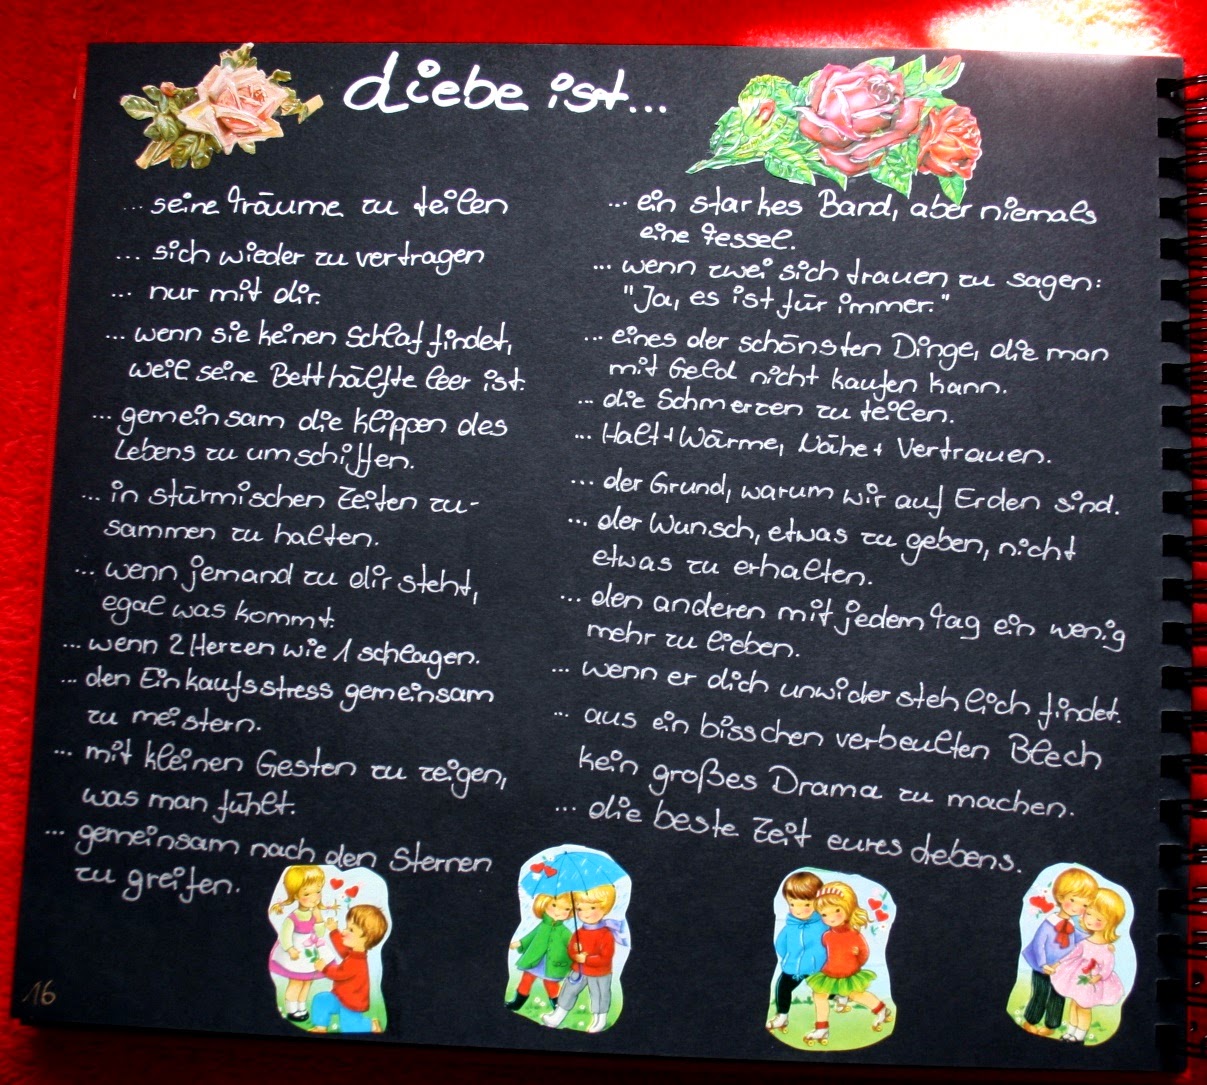 Liebe ist...
... seine Träume zu teilen
... sich wieder zu vertragen
... nur mit dir.
... wenn sie keinen Schlaf findet,
weil seine Betthälfte leer ist.
... gemeinsam die Klippen des
Lebens zu umschiffen.
... in stürmischen Zeiten zu-
sammen zu halten.
... wenn jemand zu dir steht,
egal was kommt.
... wenn 2 Herzen wie 1 schlagen.
... den Einkaufsstress gemeinsam
zu meistern.
... mit kleinen Gesten zu zeigen,
was man fühlt.
... gemeinsam nach den Sternen
zu greifen.
... ein starkes Band, aber niemals
eine Fessel.
... wenn zwei sich trauen zu sagen:
"Ja, es ist für immer."
... eines der schönsten Dinge, die man
mit Geld nicht kaufen kann.
... die Schmerzen zu teilen.
... Halt + Wärme, Nähe + Vertrauen.
... der Grund, warum wir auf Erden sind.
... der Wunsch, etwas zu geben, nicht
etwas zu erhalten.
... den anderen mit jedem Tag ein wenig
mehr zu lieben.
... wenn er dich unwiderstehlich findet.
... aus ein bisschen verbeulten Blech
kein großes Drama zu machen.
... die beste Zeit eures Lebens.
16